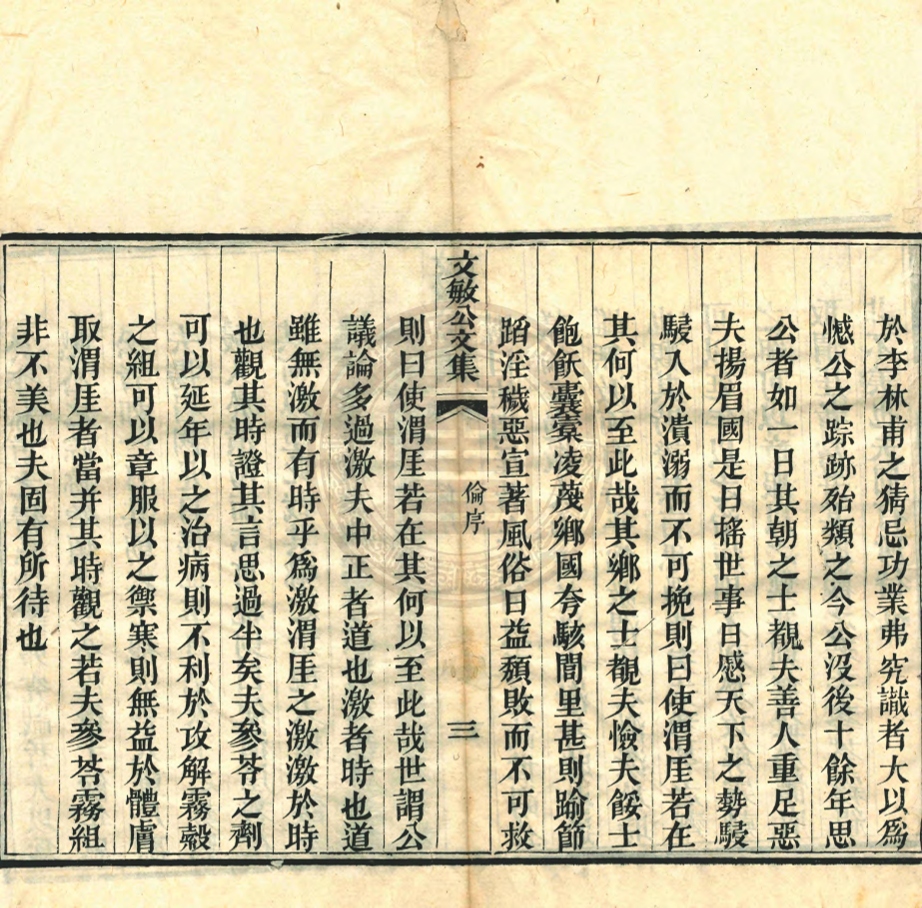 於李林甫之猜忌功業弗究識者大以爲
憾公之踪跡殆類之今公沒後十餘年思
公者如一日其朝之士覩夫善人重足惡
夫揚眉國是日搖世事日慼天下之勢駸
駸入於潰溺而不可挽則曰使渭厓若在
其何以至此哉其鄉之士覩夫憸夫餒士
飽飫囊橐凌蔑鄉國夸駭閭里甚則踰節
蹈淫穢惡宣著風俗日益頹敗而不可救
文敏公文集
倫序
三
則曰使渭厓若在其何以至此哉世謂公
議論多過激夫中正者道也激者時也道
雖無激而有時乎爲激渭厓之激激於時
也觀其時證其言思過半矣夫參苓之劑
可以延年以之治病則不利於攻解霧縠
之組可以章服以之禦寒則無益於體膚
取渭厓者當并其時觀之若夫參苓霧組
非不美也夫固有所待也